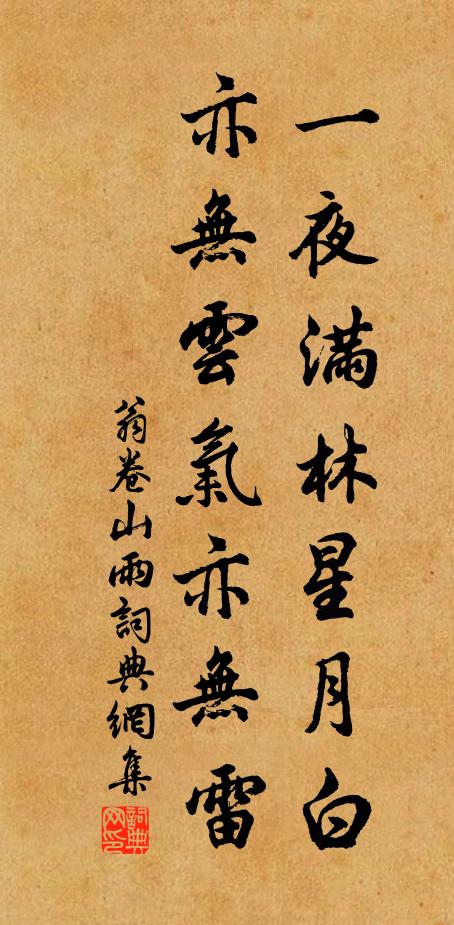 一夜滿林星月白
亦無雲氣亦無雷
翁卷山雨詞典網集
詞典网印